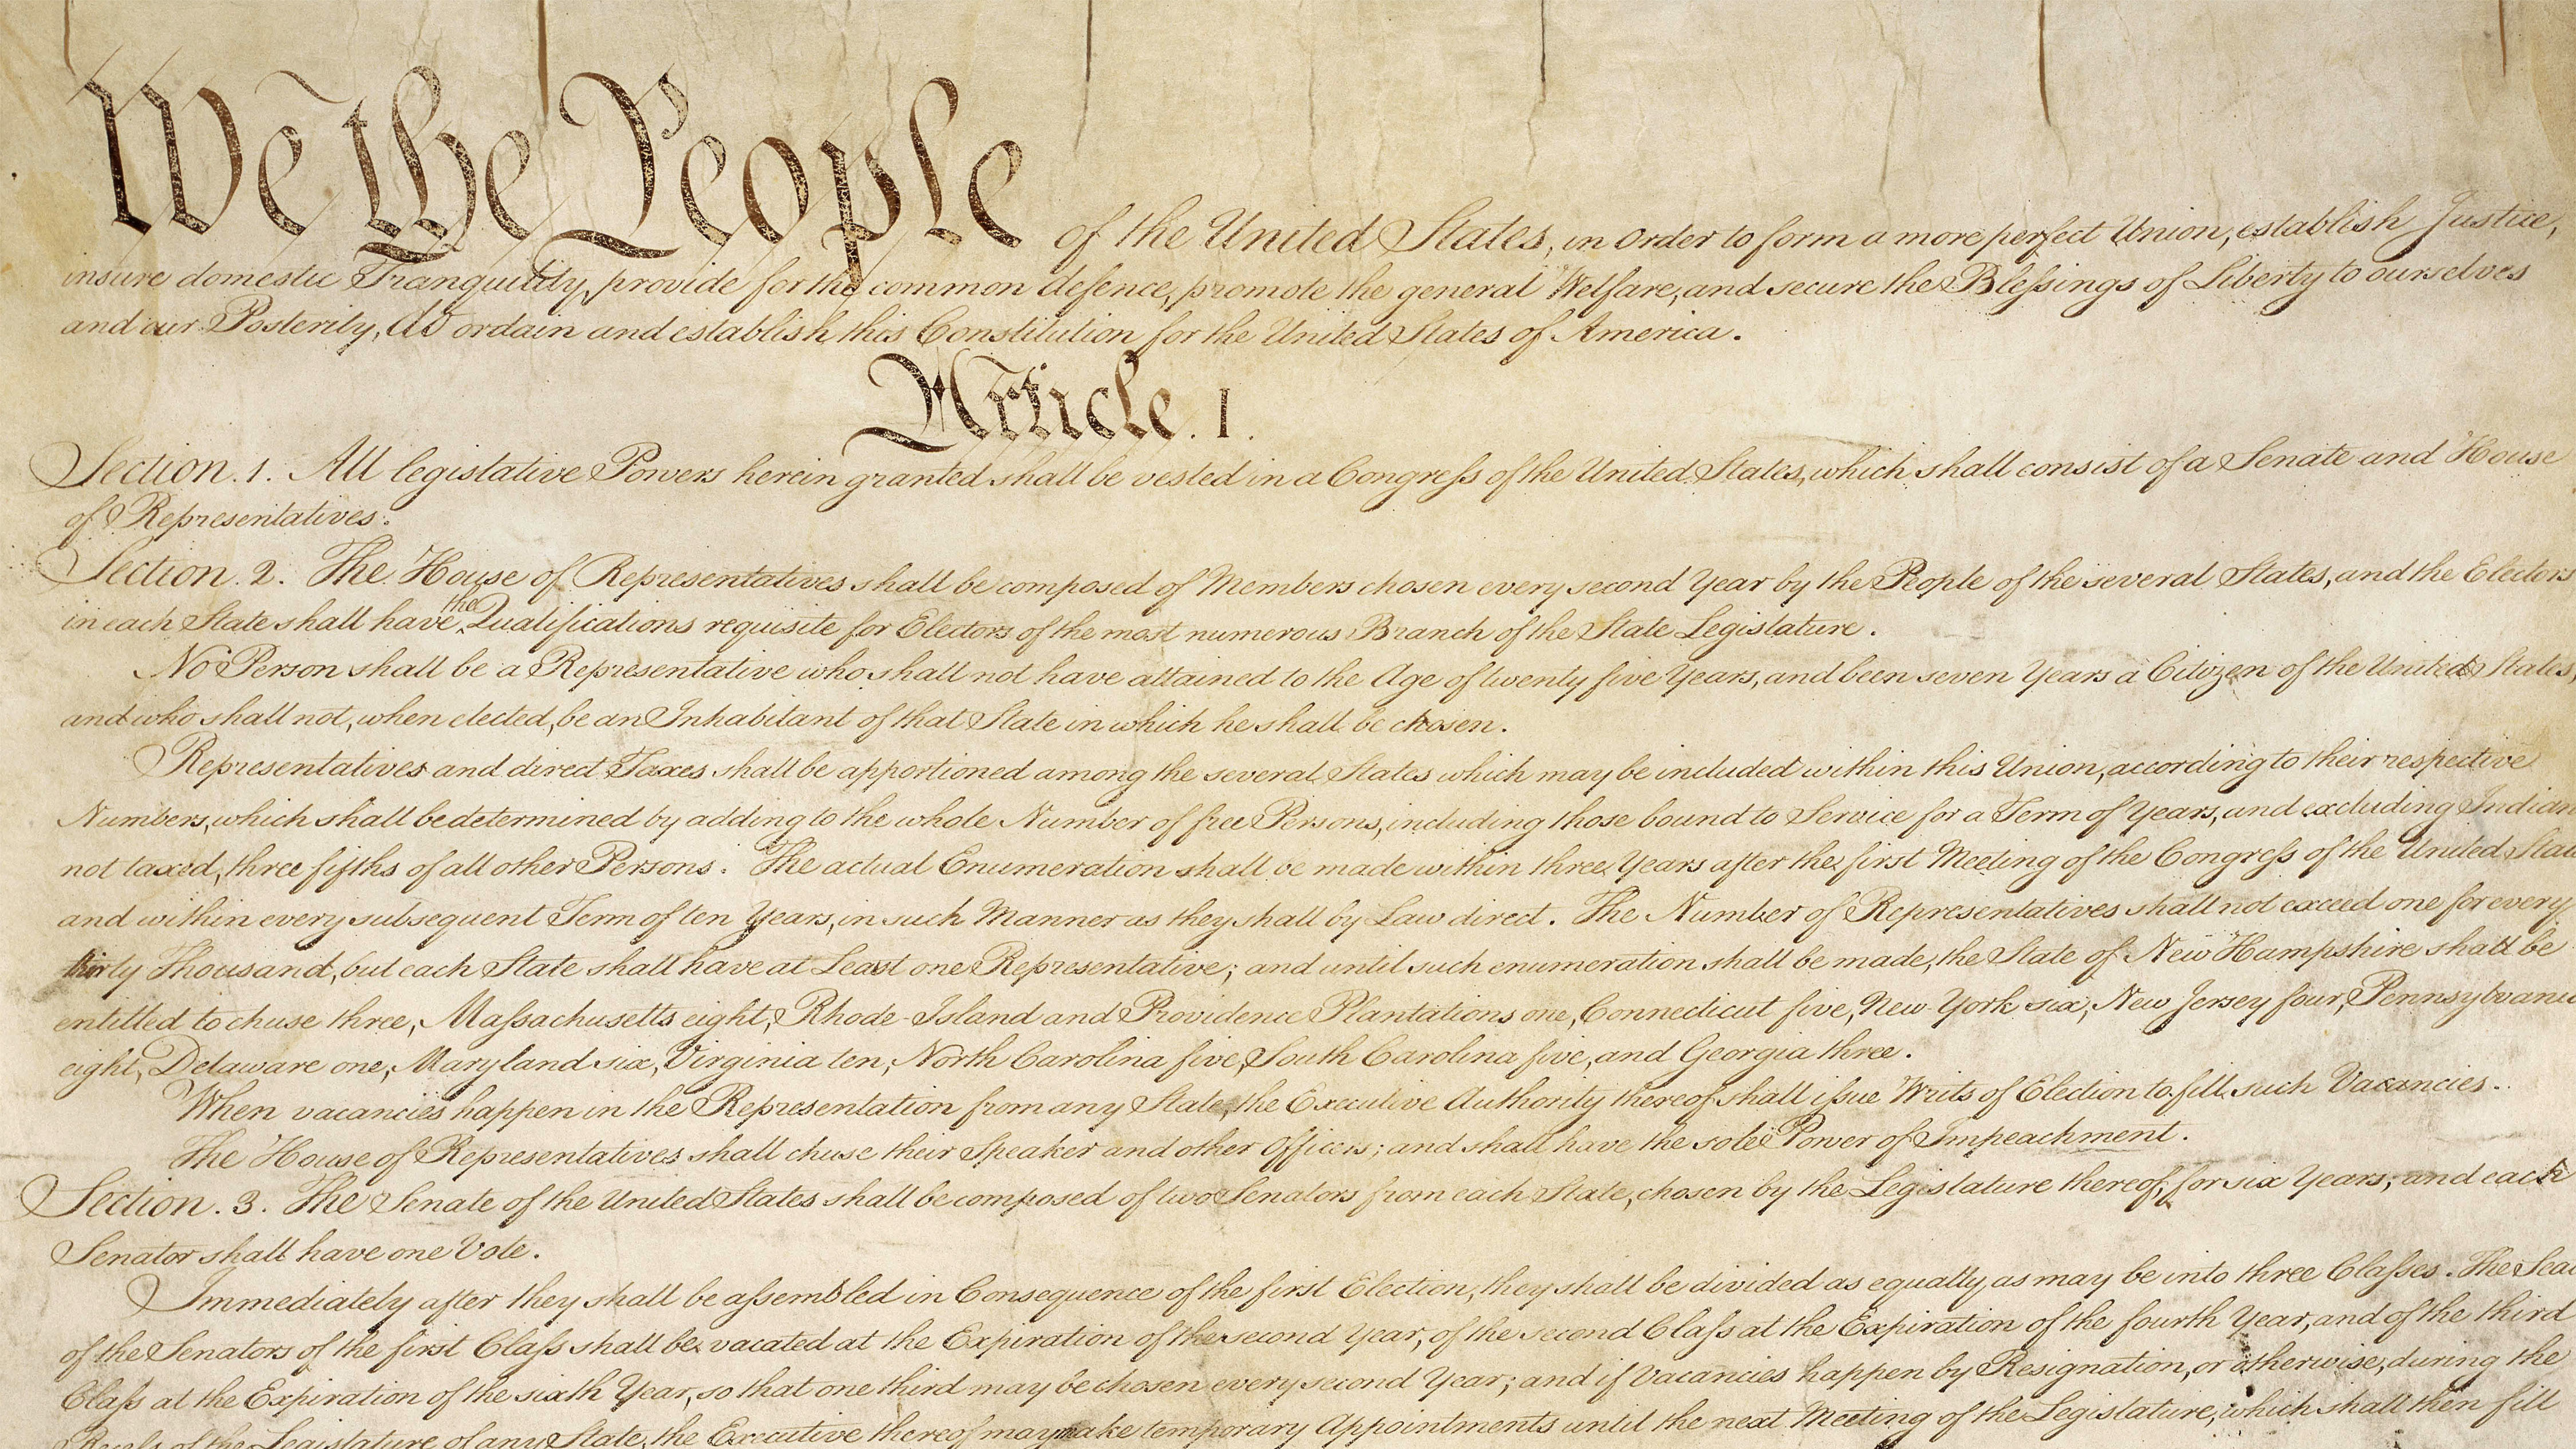 We the People of the United States, in Order to form a more perfect Union, establish Justice,
insure domestic Tranquility, provide for the common defence, promote the general Welfare, and secure the Blessings of Liberty to ourselves
and our Posterity, do ordain and establish this Constitution for the United States of America.
Article. I.
Section. 1. All legislative Powers herein granted shall be vested in a Congress of the United States, which shall consist of a Senate and House
of Representatives.
Section. 2. The House of Representatives shall be composed of Members chosen every second Year by the People of the several States, and the Electors
in each State shall have the Qualifications requisite for Electors of the most numerous Branch of the State Legislature.
No Person shall be a Representative who shall not have attained to the Age of twenty five Years, and been seven Years a Citizen of the United States,
and who shall not, when elected, be an Inhabitant of that State in which he shall be chosen.
Representatives and direct Taxes shall be apportioned among the several States which may be included within this Union, according to their respective
Numbers, which shall be determined by adding to the whole Number of free Persons, including those bound to Service for a Term of Years, and excluding Indian
not taxed, three fifths of all other Persons. The actual Enumeration shall be made within three Years after the first Meeting of the Congress of the United Stat
and within every subsequent Term of ten Years, in such Manner as they shall by Law direct. The Number of Representatives shall not exceed one for every
thirty Thousand, but each State shall have at Least one Representative; and until such enumeration shall be made, the State of New Hampshire shall be
entitled to chuse three, Massachusetts eight, Rhode-Island and Providence Plantations one, Connecticut five, New-York six, New Jersey four, Pennsylvania
eight, Delaware one, Maryland six, Virginia ten, North Carolina five, South Carolina five, and Georgia three.
When vacancies happen in the Representation from any State, the Executive Authority thereof shall issue Writs of Election to fill such Vacancies.
The House of Representatives shall chuse their Speaker and other Officers; and shall have the sole Power of Impeachment.
Section. 3. The Senate of the United States shall be composed of two Senators from each State, chosen by the Legislature thereof, for six Years; and each
Senator shall have one Vote.
Immediately after they shall be assembled in Consequence of the first Election, they shall be divided as equally as may be into three Classes. The Sea
of the Senators of the first Class shall be vacated at the Expiration of the second Year, of the second Class at the Expiration of the fourth Year, and of the third
Class at the Expiration of the sixth Year, so that one third may be chosen every second Year; and if Vacancies happen by Resignation, or otherwise, during the
Recess of the Legislature of any State, the Executive thereof may make temporary Appointments until the next Meeting of the Legislature, which shall then fill